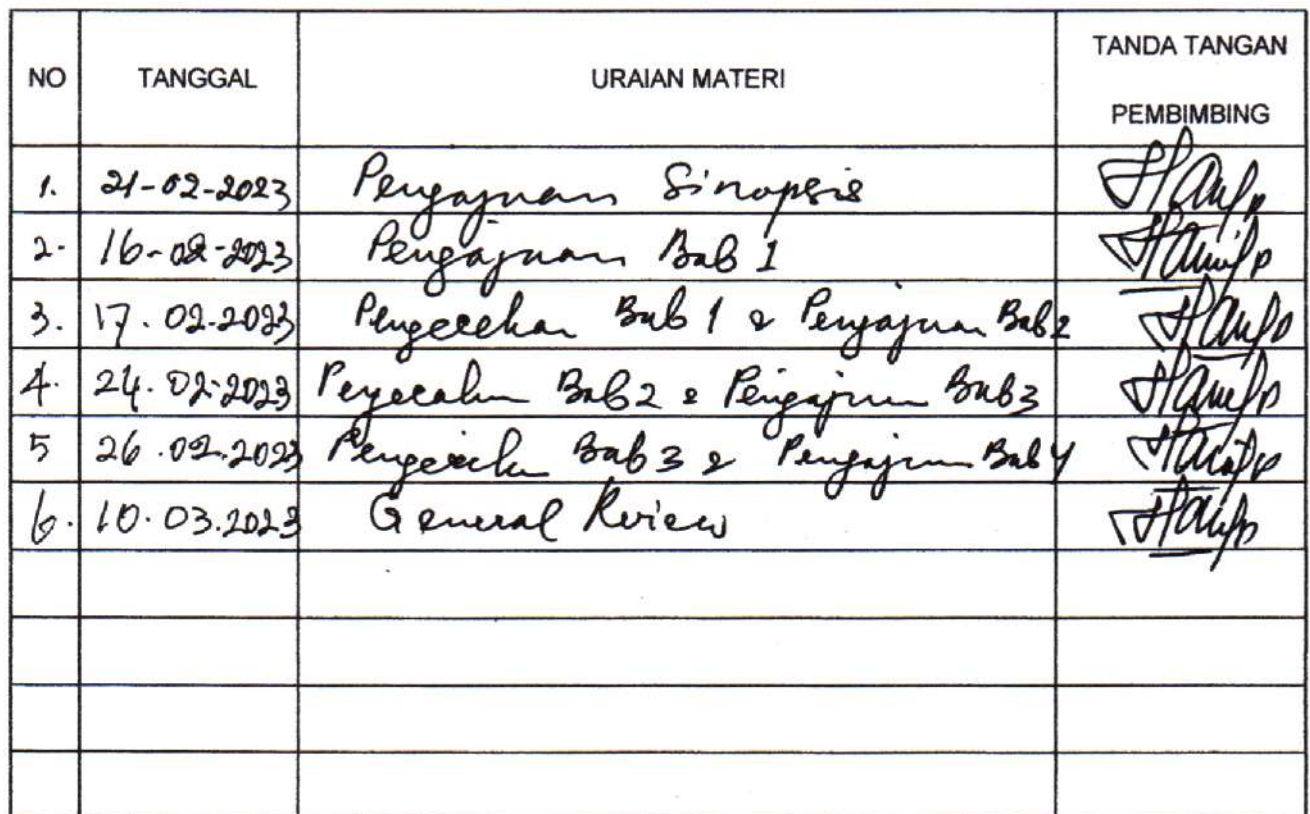 NO TANGGAL URAIAN MATERI TANDA TANGAN PEMBIMBING
1. 21-02-2023 Pengajuan Sinopsis
2. 16-02-2023 Pengajuan Bab 1
3. 17.02.2023 Pengecekan Bab 1 & Pengajuan Bab 2
4. 24.02.2023 Pengecekan Bab 2 & Pengajuan Bab 3
5 26.02.2023 Pengecekan Bab 3 & Pengajuan Bab 4
6. 10.03.2023 General Review